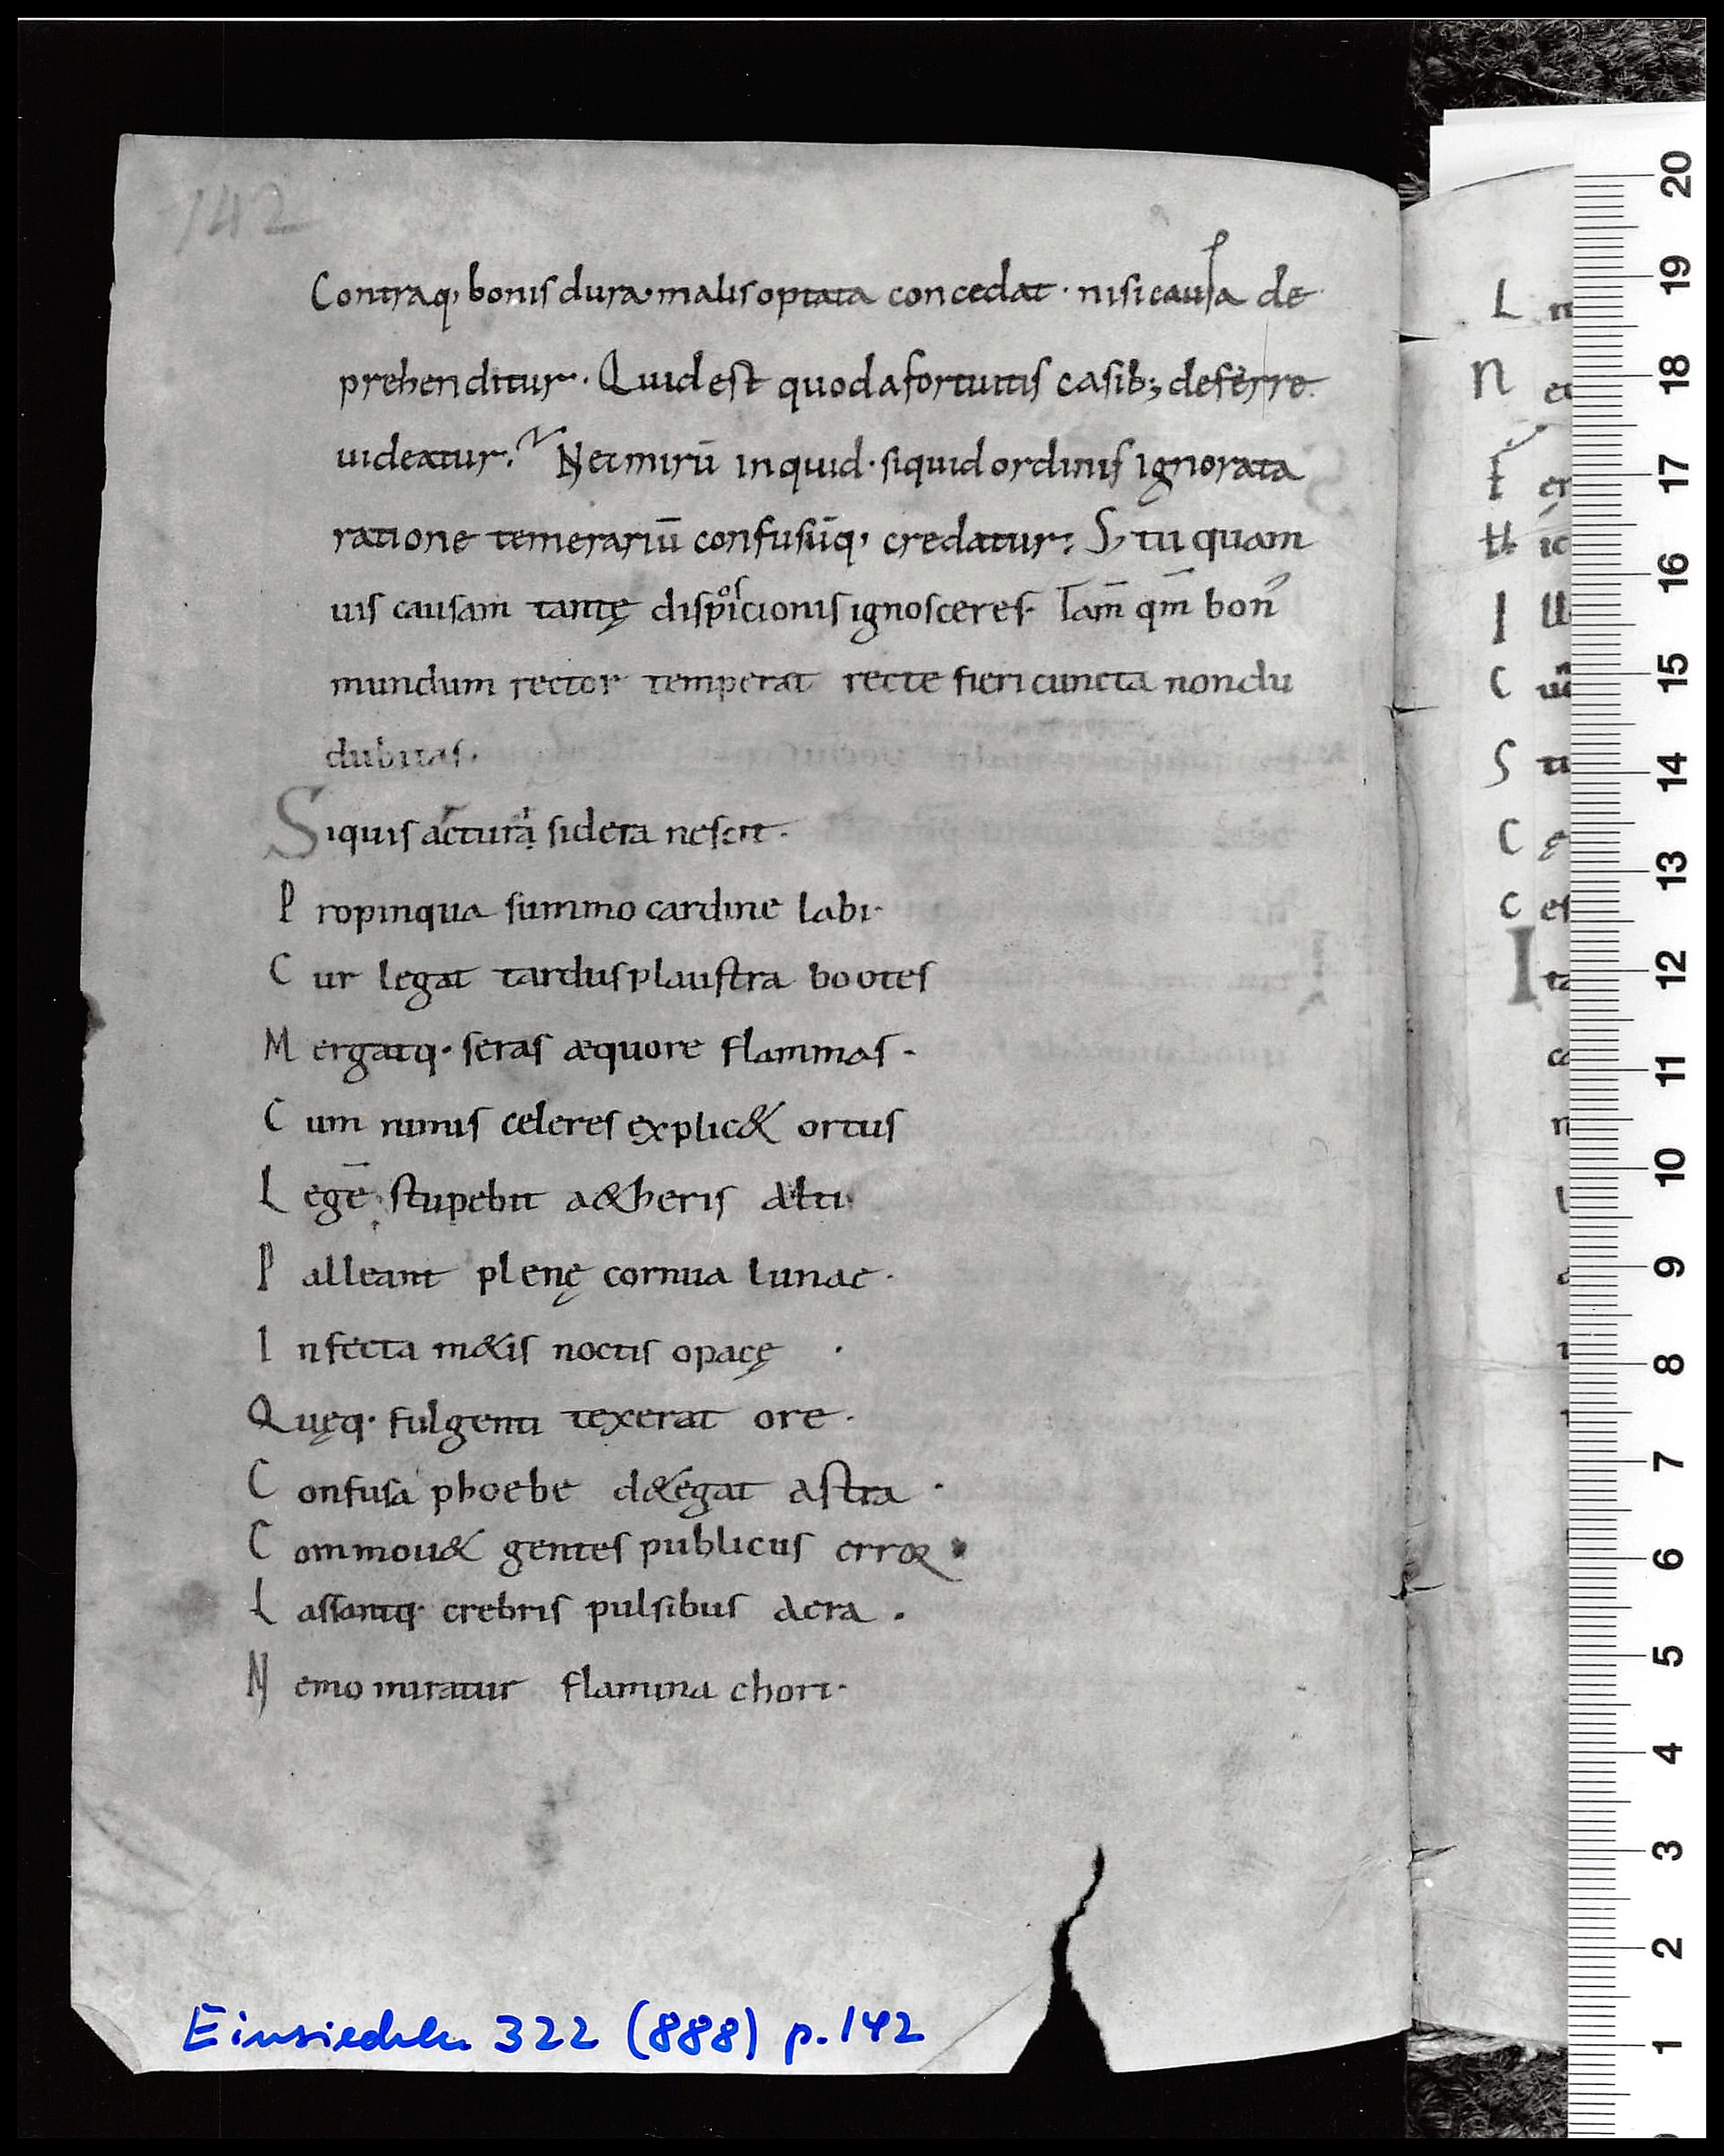 142
Contraq; bonis dura malis optata concedat · nisi causa de
prehenditur · Quid est quod a fortuitis casib; deferre
uideatur? Nec mirū inquid · siquid ordinis ignorata
ratione temerariū confusūq; credatur; S; tu quam
uis causam tantę dispositionis ignosceres · Tam̄ qm̄ bon᾽
mundum rector temperat recte fieri cuncta non du
dubitas ·
Siquis arcturi sidera nescit ·
Propinqua summo cardine labi ·
Cur legat tardus plaustra bootes
Mergatq · seras æquore flammas ·
Cum nimis celeres explic& ortus
Legē stupebit a&heris alti
Palleant plenę cornua lunae ·
Infecta m&is noctis opacę ·
Quęq · fulgenti texerat ore ·
Confusa phoebe d&egat astra ·
Commou& gentes publicus error ·
Lassantq; crebris pulsibus aera .
Nemo miratur flamina chori ·
Einsiedeln 322 (888) p. 142
L
N
I
C
S
C
C
20
19
18
17
16
15
14
13
12
11
10
9
8
7
6
5
4
3
2
1